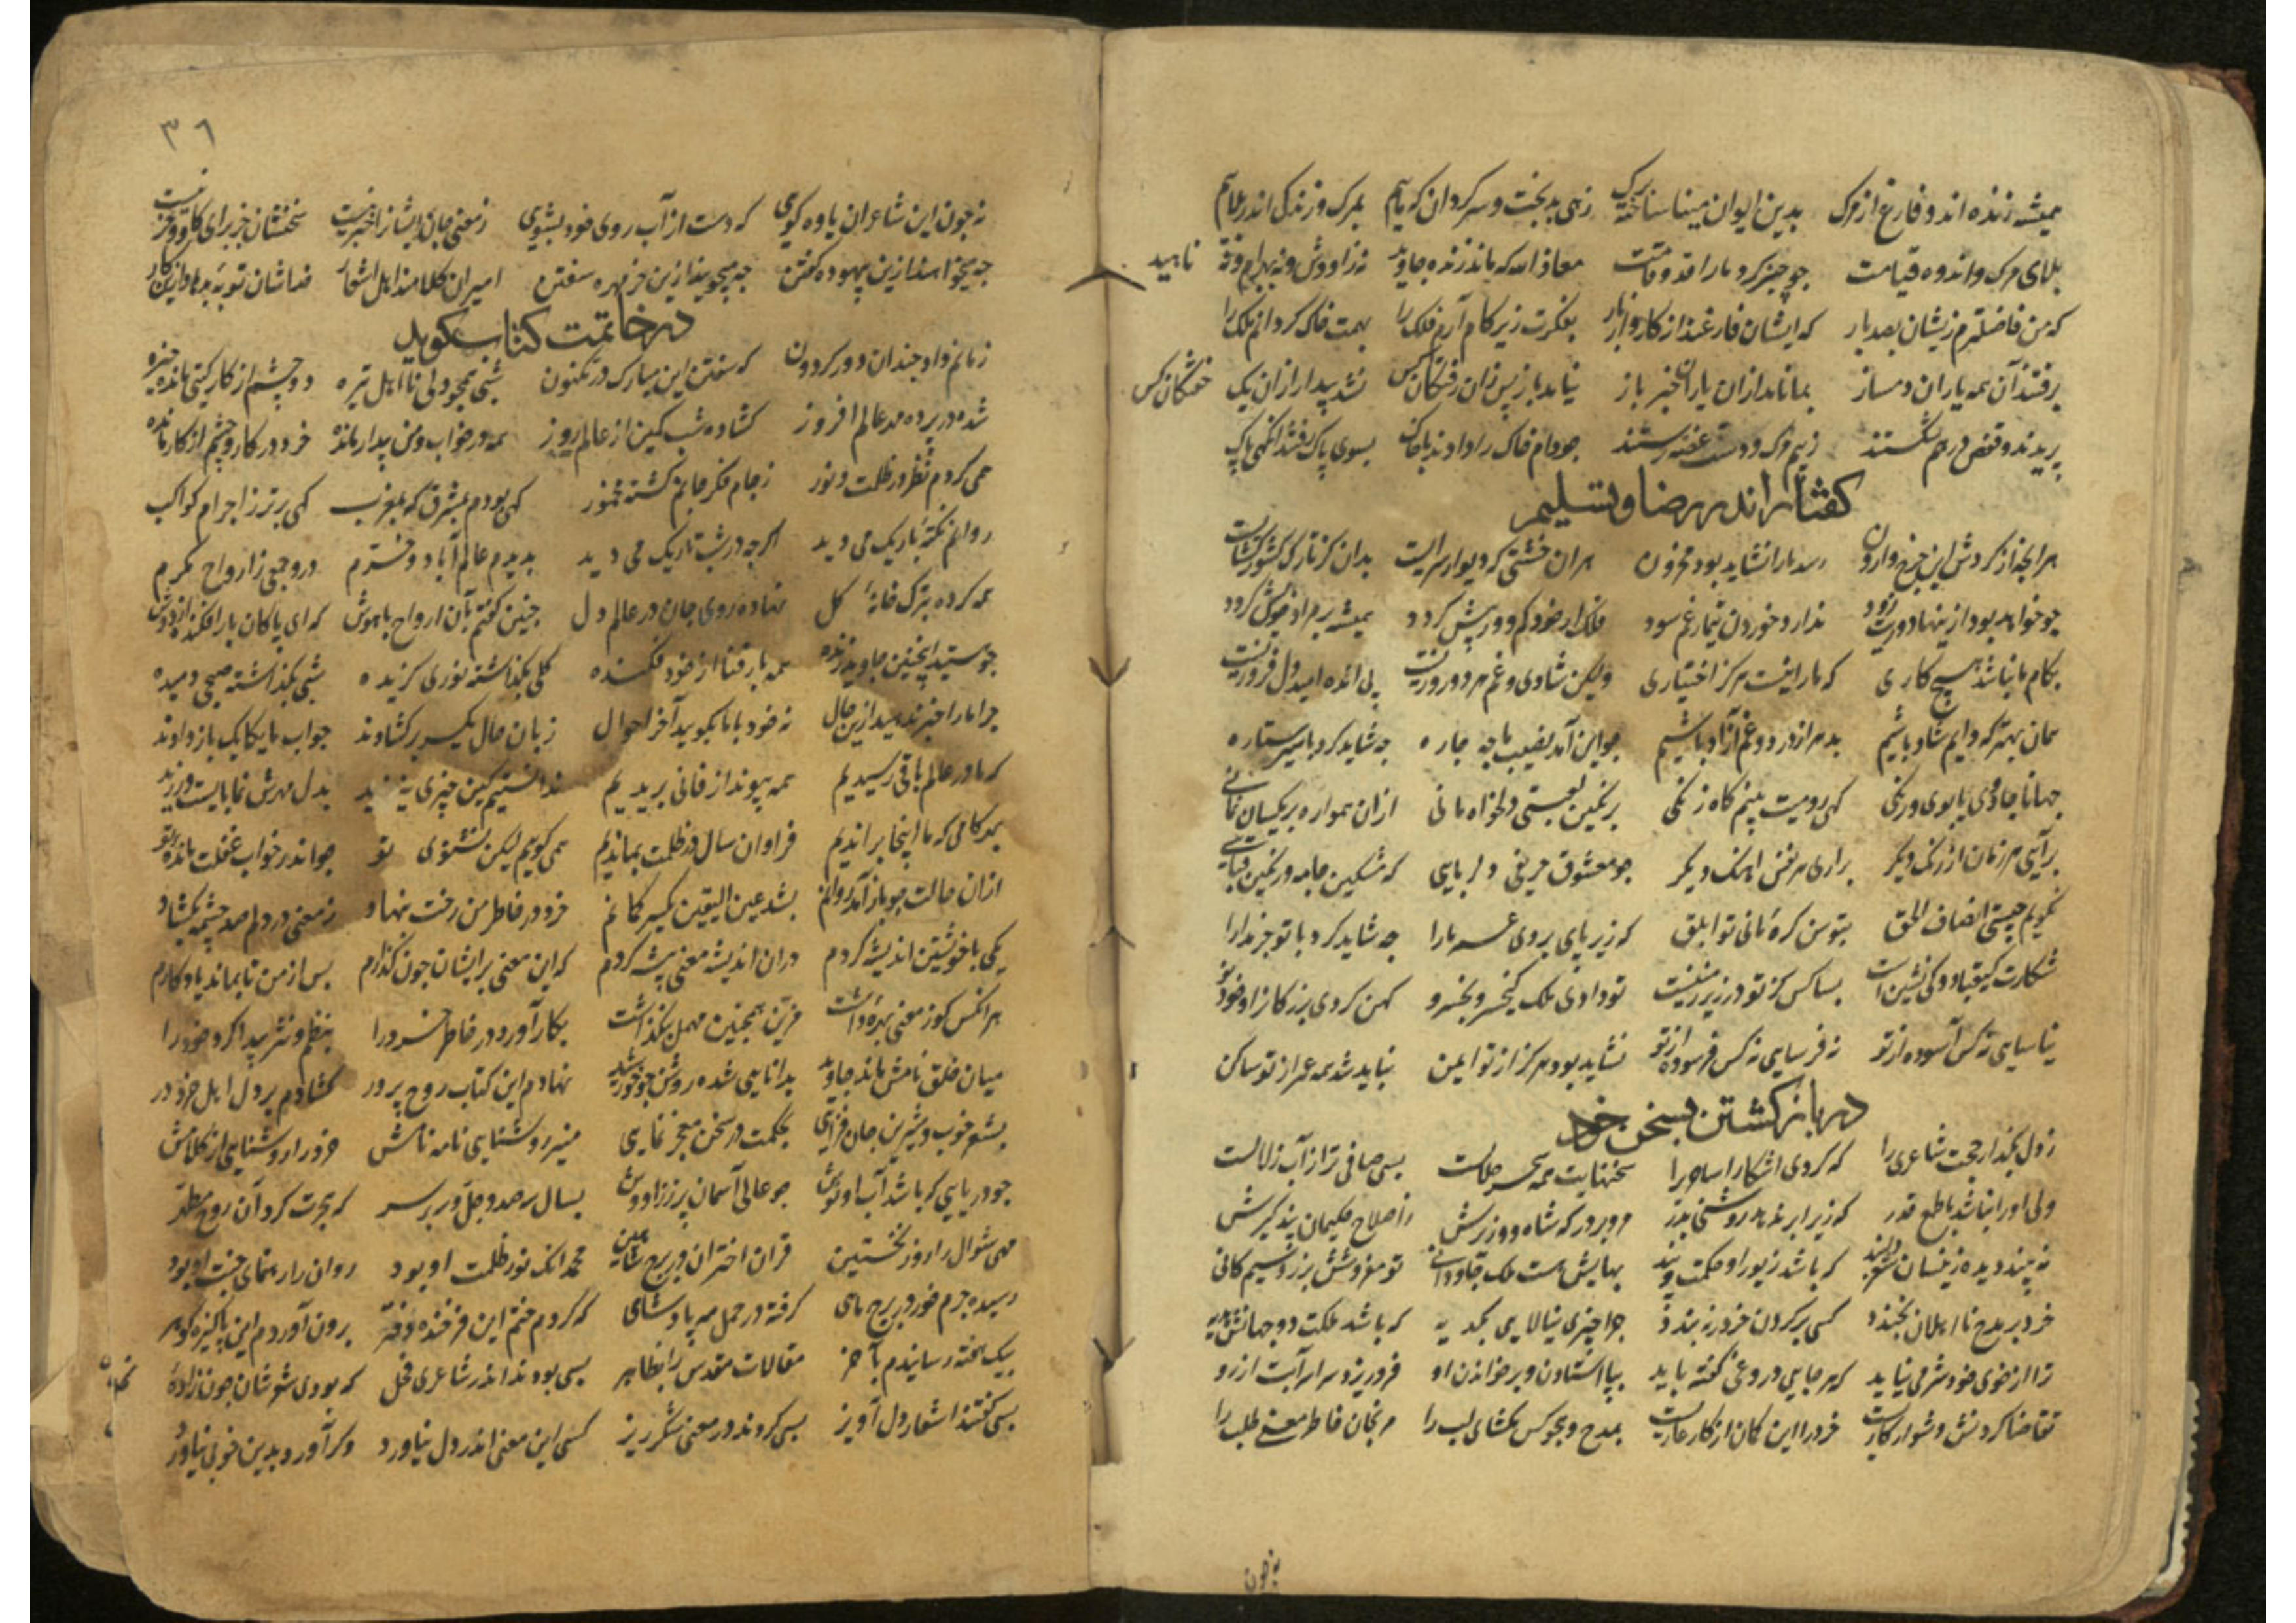 همیشه زنده اند و فارغ از مرگ بدین ایوان مینا ساخته برگ زهی بدبخت و سرکردان که مایم بمرک و زندکی اندر
بلای مرک و اندوه قیامت جو جنبر کرد ما را قد و قامت معاذ الله که ماند زنده جاوید نه زاووش و نه بهرام و نه ناهید
که من فاضلترم زیشان بصد بار که ایشان فارغند از کار و از بار بفکرت زیر کام آرم فلک را بهمت خاک کردانم ملک را
برفتند آن همه یاران دمساز بما ناند ازان یاران خبر باز نیاید باز پس زان رفتکان کس نشد بیدار ازان یک خفتکان کس
پریدند و قفص در هم شکستند ز بیم مرک و دست غصه رستند جو دام خاک را دادند با خاک بسوی پاک رفتند انکهی پاک
کفتار اندر رضا و تسلیم
هر انجه از کردش این جرخ وارون رسد ما را نشاید بود محزون هر ان خشتی که دیوار سرایست بدان کز تارک کشورکشایست
جو خواهد بود ازینها دورت زود ندارد خوردن تیمار غم سود فلک ار خود کم و ور بیش کردد همیشه بر مراد خویش کردد
بکام ما نباشد هیچ کاری که ما را نیست هرکز اختیاری ولیکن شادی و غم هر دو روزیست پی انده امید دل فروزیست
همان بهتر که دایم شاد باشیم بدهر از درد و غم آزاد باشیم جو این آمد نصیب ما جه جاره جه شاید کرد با سیر ستاره
جهانا جادوی با بوی و رنکی کهی رومیت بینم کاه زنکی برنکین لعبتی دلخواه مانی ازان همواره بر یکسان نمانی
برآیی هر زمان از رنک دیکر براری هر نفس اهنک دیکر جو معشوق حریفی دلربایی که مشکین جامه و رنکین قبایی
نکویم جیستی انصاف الحق بتوسن کره مانی تو ابلق که زیر پای بردی عمر ما را جه شاید کرد با تو جز مدارا
شکارت کیقباد و کی نشین است بسا کس کز تو در زیر زمینست تو دادی ملک کیخسرو بخسرو کهن کردی بزرکان را و خود نو
نیاسایی نه کس آسوده از تو نه فرسایی نه کس فرسوده از تو نشاید بود هرکز از تو ایمن نباید شد همه عمر از تو ساکن
در باز کشتن بسخن خود
ز دل بکذار حجت شاعری را که کردی اشکارا ساحری را سخنهایت همه سحر حلالست بسی صافی تر از آب زلالست
ولی او را نباشد با طمع قدر که زیر ابر ندهد روشنی بدر مرو بر در که شاه و وزیرش ز اصلاح حکیمان پند کیرش
نه پسندیده زینسان شعر دلبند که باشد زیور او حکمت و پند بهایش هست ملک جاودانی تو مفروشش بزر و سیم کانی
خرد بر مدح نااهلان بخندد کسی بر کردن خر در نبندد جرا چیزی نیالایی بکدیه که باشد ملکت دو جهانش هدیه
ترا از خوی خود شرمی نیاید که هر جایی دروغی کفته باید بپا استادن و بر خواندن او فرو ریزد سراسر آبت از رو
تقاضا کردنش دشوار کاریست خرد را این کان از کار عاریست بمدح و هجو کس مکشای لب را مرنجان خاطر معنی طلب را
نه جون
٣٦
نه جون این شاعران یاوه کوی که دست از آب روی خود بشوی ز معنی جان ایشان را خبر نیست سخنشان جز برای کاو و خر نیست
جه میخواهند ازین بیهوده کفتن جه میجویند ازین خرمهره سفتن امیران کلامند اهل اشعار خداشان توبه بدهاد ازین کار
در خاتمت کتاب کوید
زمانم داد جندان دور کردون که سفتن این مبارک در مکنون شبی همجو دل نااهل تیره دو چشم از کار کیتی مانده خیره
شده در پرده مه عالم افروز کشاده شب کمین از عالم روز همه در خواب و من بیدار مانده خرد در کار و چشم از کار مانده
همی کردم نظر در ظلمت و نور ز جام فکر جانم کشته مخمور کهی بودم بمشرق که بمغرب کهی برتر ز اجرام کواکب
روانم نکته باریک می دید اکرجه در شب تاریک می دید بدیدم عالم آباد و خرم درو جمعی ز ارواح مکرم
همه کرده بترک خانه کل نهاده روی جان در عالم دل جنین کفتم بآن ارواح باهوش که ای پاکان بار افکنده از دوش
جو هستید اینجنین جاوید زنده همه بار فنا از خود فکنده کلی بکذاشته نوری کزیده شبی بکذاشته صبحی دمیده
جرا ما را خبر ندهید ازین حال نه خود با ما بکویید آخر احوال زبان حال یکسر برکشادند جواب ما یکایک باز دادند
که ما در عالم باقی رسیدیم همه پیوند از فانی بریدیم ندانستیم کین چیزی نیرزید بدل مهرش نمی بایست ورزید
بهر کامی که ما اینجا براندیم فراوان سال در ظلمت بماندیم همی کوییم لیکن نشنوی تو جو اندر خواب غفلت مانده تو
ازان حالت جو باز آمد روانم بشد عین الیقین یکسر کمانم خرد در خاطر من رخت بنهاد ز معنی در دلم صد چشمه بکشاد
یکی با خویشتن اندیشه کردم دران اندیشه معنی پیشه کردم که این معنی بر ایشان جون کذارم پس از من تا بماند یادکارم
هر انکس کو ز معنی بهره داشت قرین همجنین مهمل بنکذاشت بکار آورد در خاطر خرد را بنظم و نثر پیدا کرد خود را
میان خلق نامش ماند جاوید بدانایی شده روشن جو خورشید نهادم این کتاب روح پرور کشادم بر دل اهل خرد در
بشعر خوب و شیرین جان فزایی بحکمت در سخن معجز نمایی منیر روشنایی نامه نامش خرد را روشنایی از کلامش
جو دریایی که باشد آب او نوش جو عالی آسمان پر ز زاووش بسال سیصد و جل و بر سر که هجرت کرد آن روح مطهر
مهی شوال را روز نخستین قران اختران در برج شاهین محمد انک نور ظلمت او بود روان را رهنمای جنت او بود
رسیده جرم خور در برج ماهی کرفته در حمل مه پادشاهی که کردم ختم این فرخنده دفتر برون آوردم این پاکیزه کوهر
بیک هفته رسانیدم بآخر مقالات مقدس را بظاهر بسی بودند اندر شاعری فحل که بودی شعرشان جون زاده نحل
بسی کفتند اشعار دل آویز بسی کردند در معنی شکرریز کسی این معنی اندر دل نیاورد وکر آورد بدین خوبی نیاورد